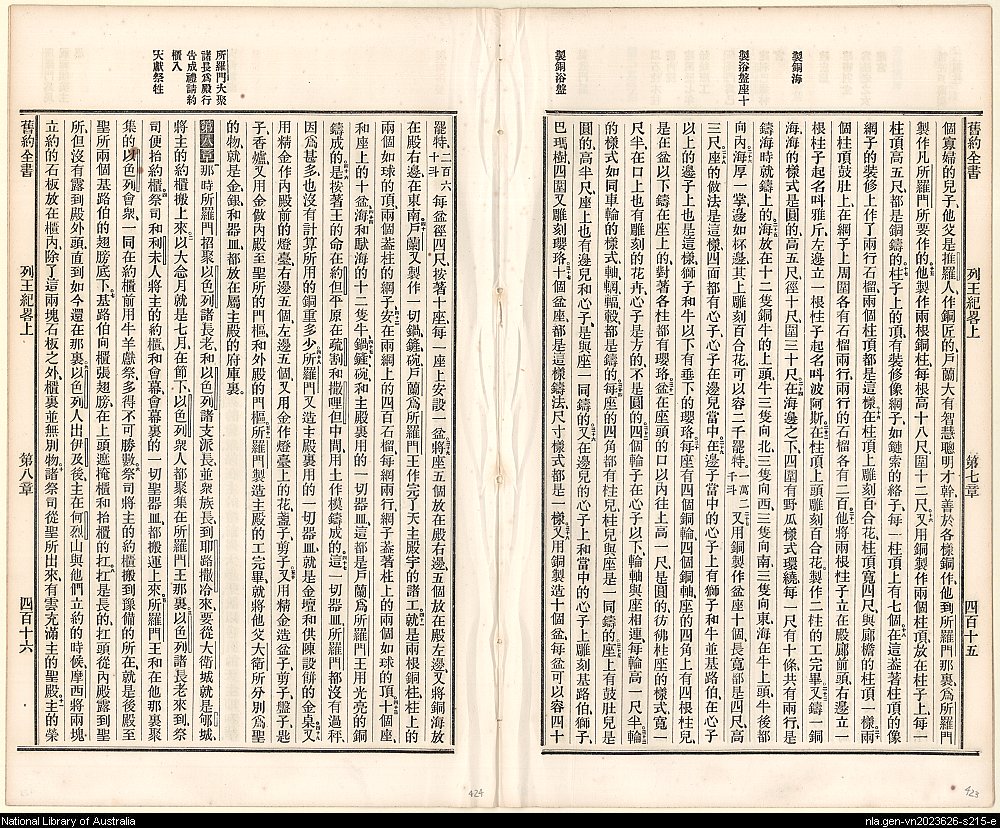 製銅海
製浴盤座十
製銅浴盤
舊約全書 列王紀畧上 第七章 四百十五
個寡婦的兒子他父是推羅人作銅匠的戶蘭大有智慧聰明才幹善於各樣銅作他到所羅門那裏爲所羅門
製作凡所羅門所要作的他製作兩根銅柱每根高十八尺圍十二尺又用銅製作兩個柱頂放在柱子上每一
柱頂高五尺都是銅鑄的柱子上的頂有裝修像網子如鏈索的絡子每一柱頂上有七個在這葢著柱頂的像
網子的裝修上作了兩行石榴兩個柱頂都是這樣在柱頂上雕刻百合花柱頂寬四尺與廊檐的柱頂一樣兩
個柱頂鼓肚上在網子上周圍各有石榴兩行兩行的石榴各有二百他將兩根柱子立在殿廊前頭右邊立一
根柱子起名叫雅斤左邊立一根柱子起名叫波阿斯在柱頂上頭雕刻百合花製作二柱的工完畢又鑄一銅
海海的樣式是圓的高五尺徑十尺圍三十尺在海邊之下四圍有野瓜樣式環繞每一尺有十條共有兩行是
鑄海時就鑄上的海放在十二隻銅牛的上頭牛三隻向北三隻向西三隻向南三隻向東海在牛上頭牛後都
向內海厚一掌邊如杯邊其上雕刻百合花可以容二千罷特一萬二千斗又用銅製作盆座十個長寬都是四尺高
三尺座的做法是這樣四面都有心子心子在邊兒當中邊子當中的心子上有獅子和牛並基路伯在心子
以上的邊子上也是這樣獅子和牛以下有垂下的瓔珞每座有四個銅輪四個銅軸座的四角上有四根柱兒
是在盆以下鑄在座上的對著各柱都有瓔珞盆在座頭的口以內往上高一尺是圓的彷彿柱座的樣式寬一
尺半在口上也有雕刻的花卉心子是方的不是圓的四個輪子在心子以下輪軸與座相連每輪高一尺半輪
的樣式如同車輪的樣式軸輞輻轂都是鑄的每座的四角都有柱兒柱兒與座是一同鑄的座上有鼓肚兒是
圓的高半尺座上也有邊兒和心子是與座一同鑄的又在邊兒的心子上和當中的心子上雕刻基路伯獅子
巴瑪樹四圍又雕刻瓔珞十個盆座都是這樣鑄法尺寸樣式都是一樣又用銅製造十個盆每盆可以容四十
423
所羅門大聚
諸長爲殿行
告成禮請約
櫃入
大獻祭牲
罷特二百六十斗每盆徑四尺按著十座每一座上安設一盆將座五個放在殿右邊五個放在殿左邊又將銅海放
在殿右邊在東南戶蘭又製作一切鍋鏟碗戶蘭爲所羅門王作完了天主殿宇的諸工就是兩根銅柱柱上的
兩個如球的頂兩個葢柱的網子安在兩網上的四百石榴每網兩行網子葢著柱上的兩個如球的頂十個座
和座上的十盆海和馱海的十二隻牛鍋鏟碗和主殿裏用的一切器皿這都是戶蘭爲所羅門王用光亮的銅
鑄成的是按著王的命在約但平原在疏割和撒哩但中間用土作模鑄成的這一切器皿所羅門都沒有過秤
因爲甚多也沒有計算所用的銅重多少所羅門又造主殿裏用的一切器皿就是金壇和供陳設餅的金桌又
用精金作內殿前的燈臺右邊五個左邊五個又用金作燈臺上的花盞子剪子又用精金造盆子剪子盤子匙
子香爐又用金做內殿至聖所的門樞和外殿的門樞所羅門製造主殿的工完畢就將他父大衛所分別爲聖
的物就是金銀和器皿都放在屬主殿的府庫裏
第八章那時所羅門招聚以色列諸長老和以色列諸支派長並衆族長到耶路撒冷來要從大衛城就是郇城
將主的約櫃搬上來以大念月就是七月在節下以色列衆人都聚集在所羅門王那裏以色列諸長老來到祭
司便抬約櫃祭司和利未人將主的約櫃和會幕會幕裏的一切聖器皿都搬運上來所羅門王和在他那裏聚
集的以色列會衆一同在約櫃前用牛羊獻祭多得不可勝數祭司將主的約櫃搬到豫備的所在就是後殿至
聖所兩個基路伯的翅膀底下基路伯向櫃張翅膀在上頭遮掩櫃和抬櫃的扛扛是長的扛頭從內殿露到聖
所但沒有露到殿外頭直到如今還在那裏以色列人出伊及後主在何烈山與他們立約的時候摩西將兩塊
立約的石板放在櫃內除了這兩塊石板之外櫃裏並無別物諸祭司從聖所出來有雲充滿主的聖殿主的榮
舊約全書 列王紀畧上 第八章 四百十六
424
National Library of Australia
nla.gen-vn2023626-s215-e